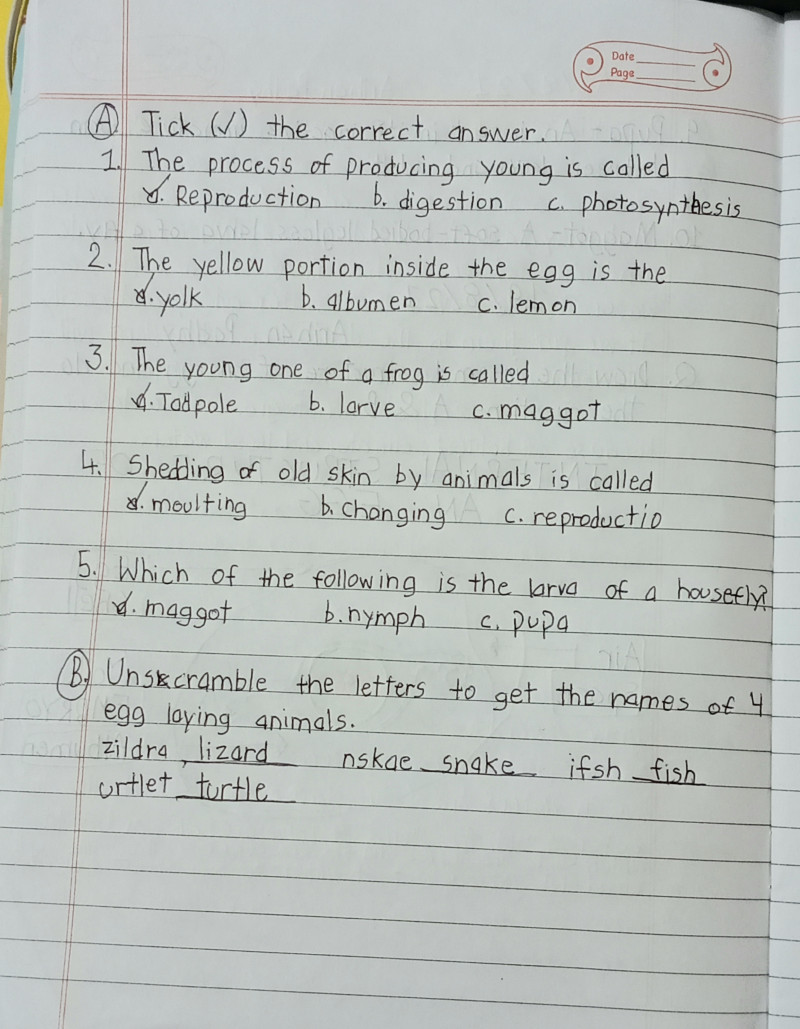 Date
Page
(A) Tick (✓) the correct answer.
1. The process of producing young is called
✓a. Reproduction b. digestion c. photosynthesis
2. The yellow portion inside the egg is the
✓a. yolk b. albumen c. lemon
3. The young one of a frog is called
✓a. Tadpole b. larve c. maggot
4. Shedding of old skin by animals is called
✓a. moulting b. changing c. reproductio
5. Which of the following is the larva of a housefly?
✓a. maggot b. nymph c. pupa
(B) Unscramble the letters to get the names of 4
egg laying animals.
zildra, lizard nskae snake ifsh fish
urtlet turtle